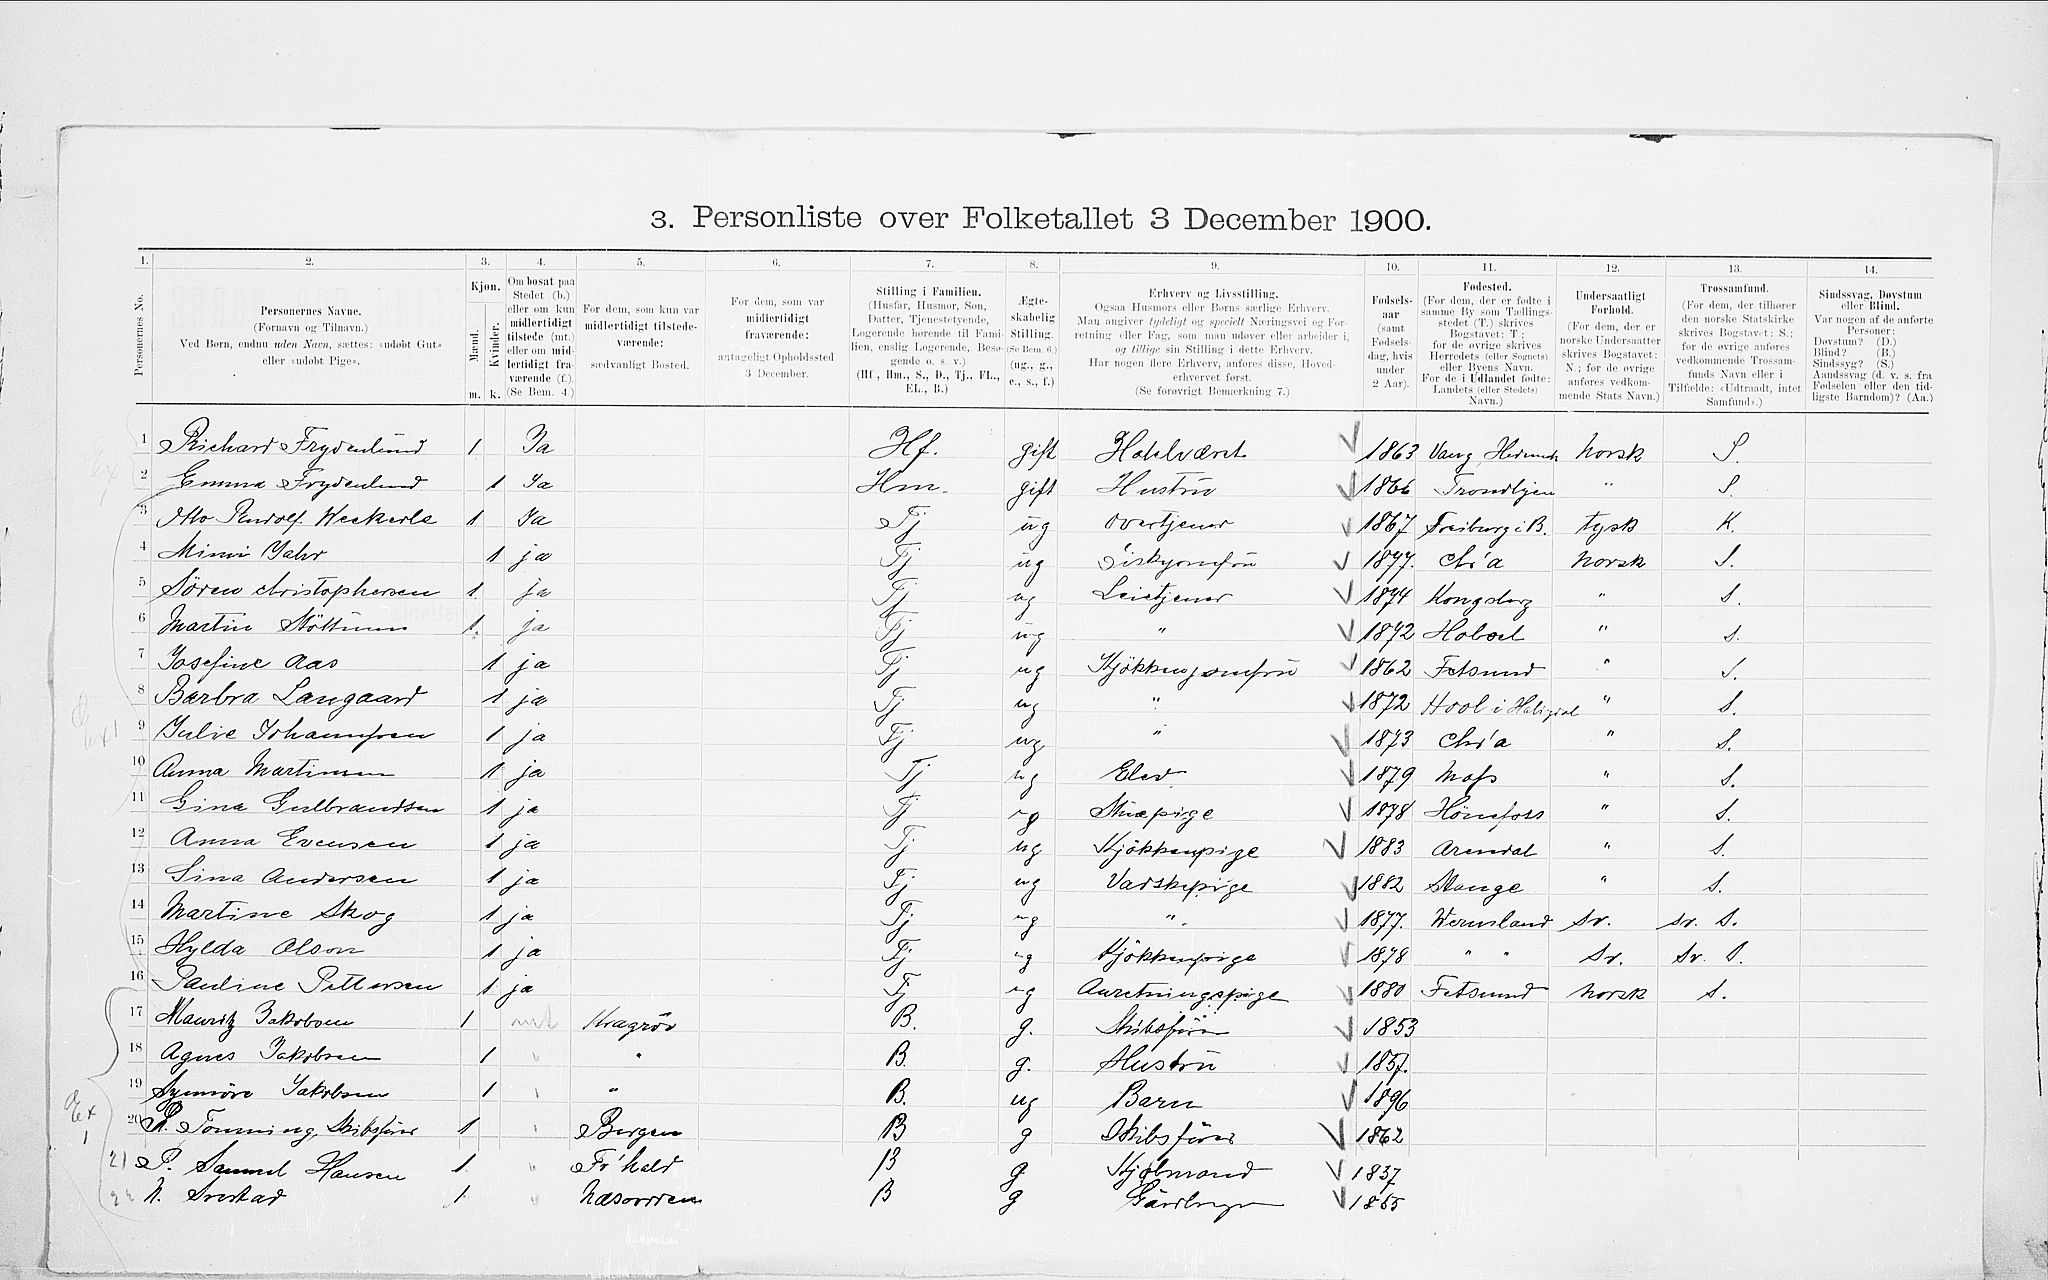 3. Personliste over Folketallet 3 December 1900.
1. 2. 3. 4. 5. 6. 7. 8. 9. 10. 11. 12. 13. 14.
Personernes No.
Personernes Navne.
(Fornavn og Tilnavn.)
Ved Børn, endnu uden Navn, sættes: «udøbt Gut»
eller «udøbt Pige».
Kjøn.
Mænd.
Kvinder.
m. k.
Om bosat paa
Stedet (b.)
eller om kun
midlertidigt
tilstede (mt.)
eller om mid-
lertidigt fra-
værende (f.)
(Se Bem. 4.)
For dem, som kun var
midlertidigt tilstede-
værende:
sædvanligt Bosted.
For dem, som var
midlertidigt
fraværende:
antageligt Opholdssted
3 December.
Stilling i Familien.
(Husfar, Husmor, Søn,
Datter, Tjenestetyende,
Logerende hørende til Fami-
lien, enslig Logerende, Besø-
gende o. s. v.)
(Hf., Hm., S., D., Tj., FL.,
EL., B.)
Ægte-
skabelig
Stilling.
(Se Bem. 6.)
(ug., g.,
e., s., f.)
Erhverv og Livsstilling.
Ogsaa Husmors eller Børns særlige Erhverv.
Man angiver tydeligt og specielt Næringsvei og For-
retning eller Fag, som man udøver eller arbeider i,
og tillige sin Stilling i dette Erhverv.
Har nogen flere Erhverv, anføres disse, Hoved-
erhvervet først.
(Se forøvrigt Bemærkning 7.)
Fødsels-
aar
(samt
Fødsels-
dag, hvis
under
2 Aar).
Fødested.
(For dem, der er fødte i
samme By som Tællings-
stedet (T.) skrives
Bogstavet: T.;
for de øvrige skrives
Herredets (eller Sognets)
eller Byens Navn.
For de i Udlandet fødte:
Landets (eller Stedets)
Navn.)
Undersaatligt
Forhold.
(For dem, der er
norske Undersaatter
skrives Bogstavet:
N.; for de øvrige
anføres vedkom-
mende Stats Navn.)
Trossamfund.
(For dem, der tilhører
den norske Statskirke
skrives Bogstavet: S.;
for de øvrige anføres
vedkommende Trossam-
funds Navn eller i
Tilfælde: «Udtraadt, intet
Samfund».)
Sindssvag, Døvstum
eller Blind.
Var nogen af de anførte
Personer:
Døvstum? (D.)
Blind? (B.)
Sindssyg? (S.)
Aandssvag (d. v. s. fra
Fødselen eller den tid-
ligste Barndom)? (Aa.)
1 Richard Frydenlund 1 Ja Hf. gift Hotelvært 1863 Vang, Hedemk norsk S.
2 Emma Frydenlund 1 Ja Hm. gift Hustru 1866 Trondhjem " S.
3 Otto Rudolf Weckerle 1 Ja Tj ug overtjener 1867 Freiburg i B. tysk K.
4 Mimi Jahr 1 ja Tj ug 1877. Chr'a norsk S.
5 Søren Christophersen 1 ja Tj ug Leietjener 1874 Kongsberg " S.
6 Martin 1. ja Tj ug " 1872 Hobøl " S.
7 Josefine Aas 1 ja Tj ug Kjøkkenjomfru 1862 Fetsund " S.
8 Barbra Langaard 1 ja Tj ug " 1872 Hool i " S.
9 Julie Johannsen 1 ja Tj ug " 1873 Chr'a " S.
10 Anna Martinsen 1 ja Tj ug Elev 1879 Moss " S.
11 Gina Gulbrandsen 1 ja Tj ug Stuepige 1878 Hønefoss " S.
12 Anna Evensen 1 ja Tj ug Kjøkkenpige 1883 Arendal " S.
13 Sina Andersen 1 ja Tj ug Vadskepige 1882 Stange " S.
14 Martine Skog 1 ja Tj ug " 1877. Wermland sv. sv. S.
15 Hylda Olson 1 ja Tj ug Kjøkkenpige 1878 " " Sv. Sv. S.
16 Pauline Pettersen 1 ja Tj ug Anretningspige 1880 Fetsund norsk S.
17 Mauritz Jakobsen 1 mt Kragrøe B. g. Skibsfører 1853
18 Agnes Jakobsen 1 " B. g. Hustru 1857.
19 Synnöve Jakobsen 1 " B. ug Barn 1896
20 R. Tönning, Skibsfører 1 Bergen B g Skibsfører 1862
21 P. Samuel Hansen 1 Fr'hald B g Kjøbmand 1837
22 N. 1 Næsodden B g Gårdbruger 1855
Ex
Ex 1
Ex
1